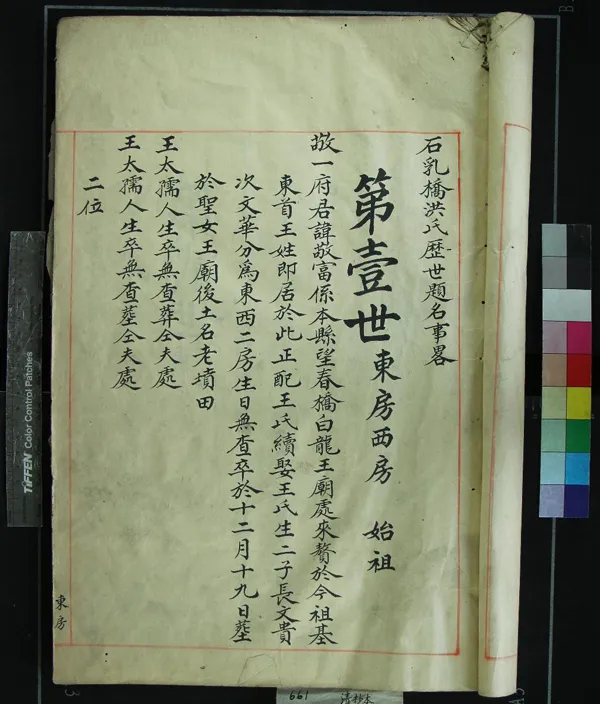 石乳橋洪氏歷世題名事畧
第壹世 東房西房 始祖
敬一府君諱敬富係本縣望春橋白龍王廟處來贅於今祖基
東首王姓即居於此正配王氏續娶王氏生二子長文貴
次文華分爲東西二房生日無查卒於十二月十九日塟
於聖女王廟後土名老墳田
王太孺人生卒無查葬仝夫處
王太孺人生卒無查塟仝夫處
二位
東房
TIFFEN Color Control Patches
661
清抄本